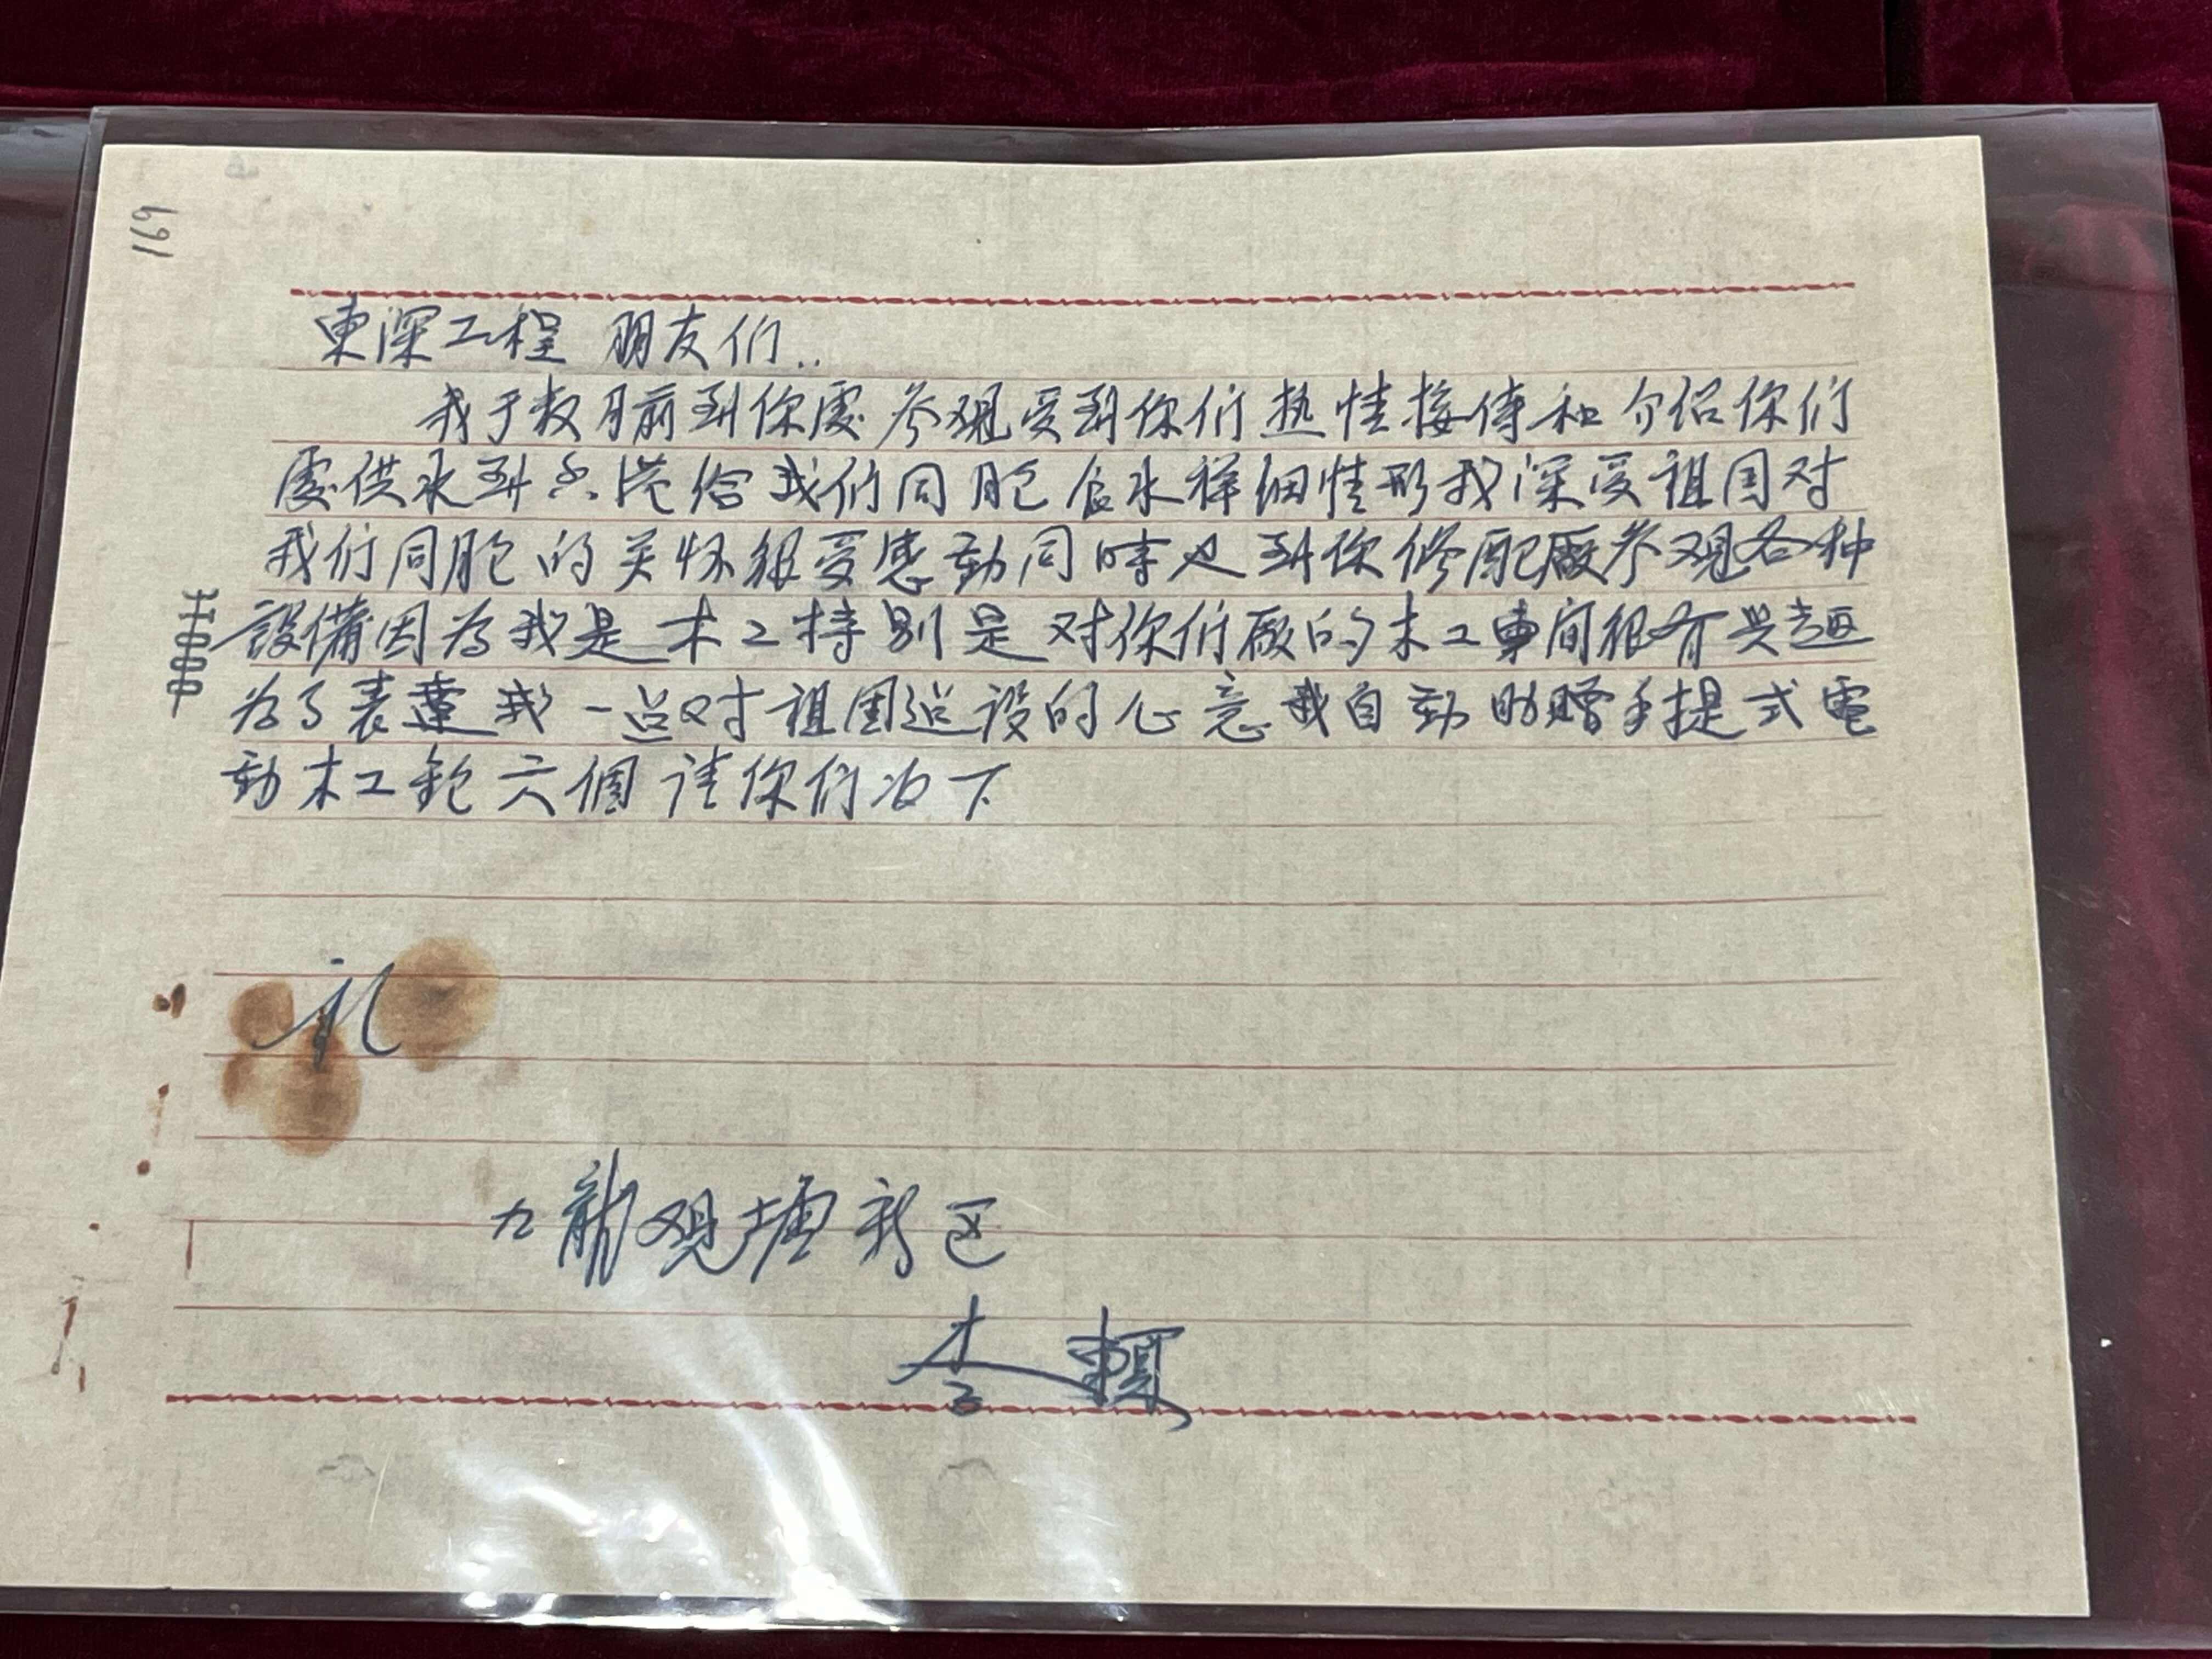 169
東深工程 朋友们..
我于数月前到你處参观受到你们热情接待和介绍你们
處供水到香港给我们同胞食水祥细情形我深受祖国对
我们同胞的关怀很受感動同時也到你修配廠参观各种
設備因為我是木工特别是对你们廠的木工車间很有兴趣
为了表達我一点对祖国建设的心意我自動助赠手提式電
動木工鉋六個请你们收下
礼
九龍观塘新区
李賴